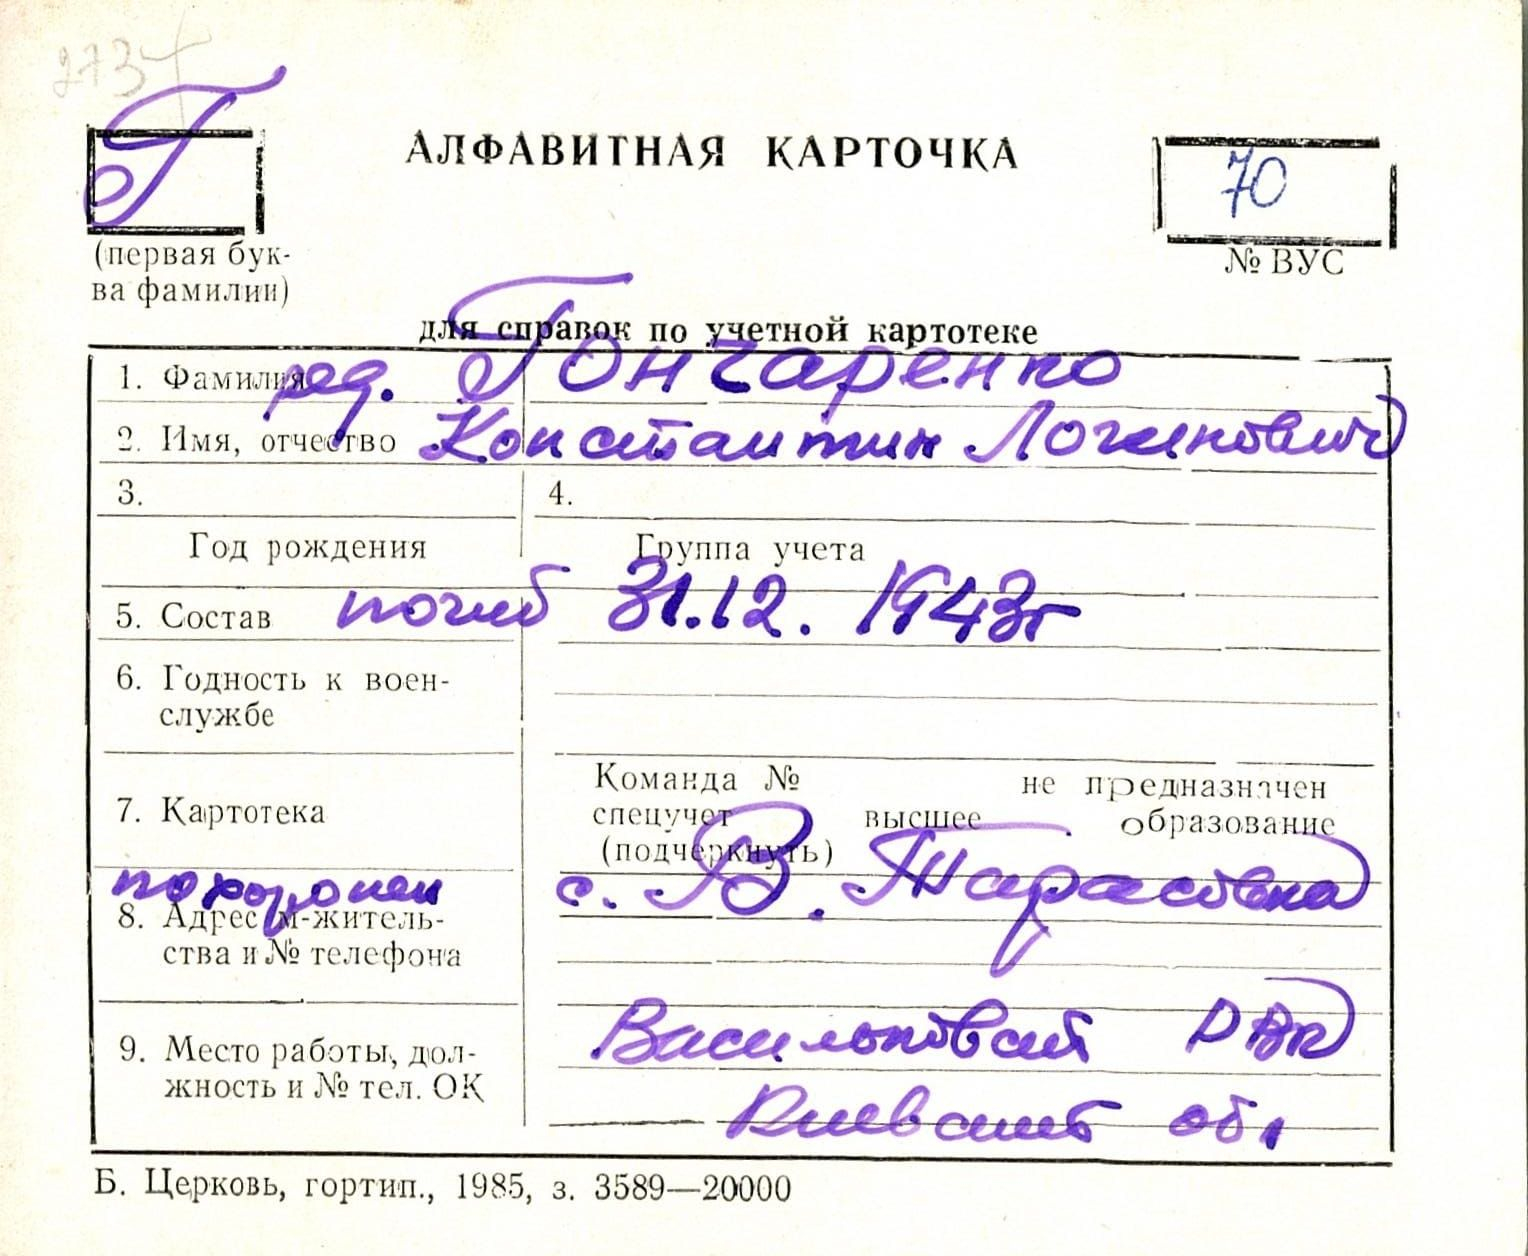 273
Г
АЛФАВИТНАЯ КАРТОЧКА
70
(первая бук-
ва фамилии)
№ ВУС
для справок по учетной картотеке
1. Фамилия ряд. Гончаренко
2. Имя, отчество Константин Логинович
3. 4.
Год рождения Группа учета
5. Состав погиб 31.12. 1943г
6. Годность к воен-
службе
7. Картотека
Команда № не предназначен
спецучет высшее образование
(подчеркнуть)
похоронен с. В. Тарасовка
8. Адрес м-житель-
ства и № телефона
9. Место работы, дол-
жность и № тел. ОК
Васильковский РВК
Киевской обл
Б. Церковь, гортип., 1985, з. 3589—20000